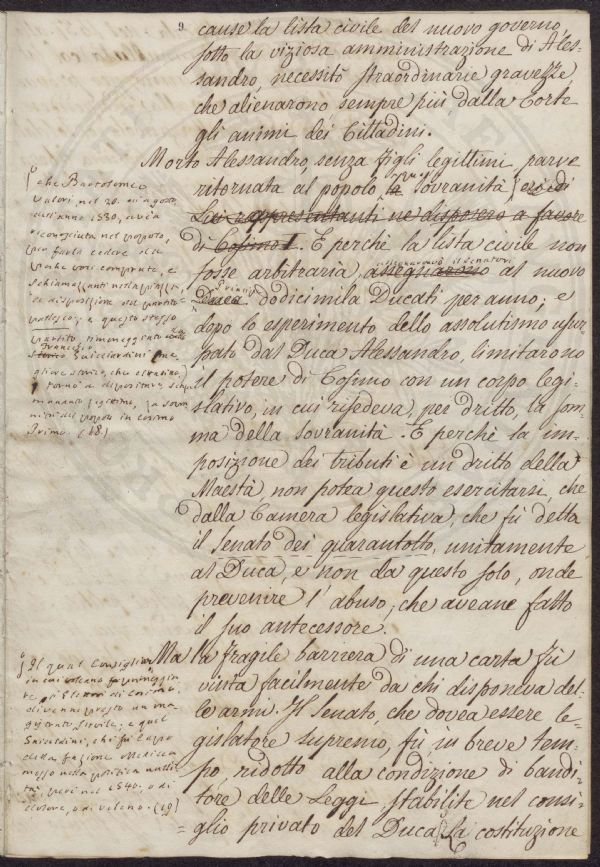 9.
cause la lista civile del nuovo governo,
sotto la viziosa amministrazione di Ales-
sandro, necessitò straordinarie gravezze,
che alienarono sempre più dalla Corte
gli animi dei Cittadini.
Morto Alessandro, senza figli legittimi, parve
ritornata al popolo la sovranità
Lui rappresentanti ne disposero a favore
di Cosimo I. E perchè la lista civile non
fosse arbitraria, assegnarono i senatori al nuovo
Duca Principe dodicimila Ducati per anno; e
dopo lo esperimento dello assolutismo usur-
pato dal Duca Alessandro, limitarono
il potere di Cosimo con un corpo legi-
slativo, in cui risedeva, per dritto, la som-
ma della sovranità. E perchè la im-
posizione dei tributi è un dritto della
Maestà, non potea questo esercitarsi, che
dalla Camera legislativa, che fù detta
il Senato dei quarantotto, unitamente
al Duca, e non da questo solo, onde
prevenire l'abuso, che aveane fatto
il suo antecessore.
Ma la fragile barriera di una carta fù
vinta facilmente da chi disponeva del-
le armi. Il Senato, che dovea essere le-
gislatore supremo, fù in breve tem-
po, ridotto alla condizione di bandi-
tore delle Leggi stabilite nel consi-
glio privato del Duca. La costituzione
che Bartolomeo
Valori, nel 20. di agosto
dell'anno 1530, avea
riconosciuta nel popolo,
per farla cedere
poche voci comprate, e
a disposizione del partito
pallesco; e questo stesso
partito, maneggiato dallo
Storico Francesco Guicciardini
gliore storico, che cittadino,
tornò a depositare,
la sovra
nità del popolo in Cosimo
Primo. (18.)
Il qual Consiglio,
in cui volean
gli Elettori di Cosimo,
divenne presto un ma
gistrato servile; e quel
Guicciardini, che fù Capo
della fazione Medicea
messo nella politica nulli
tà, perì nel 1540. o di
dolore, o di veleno. (19)